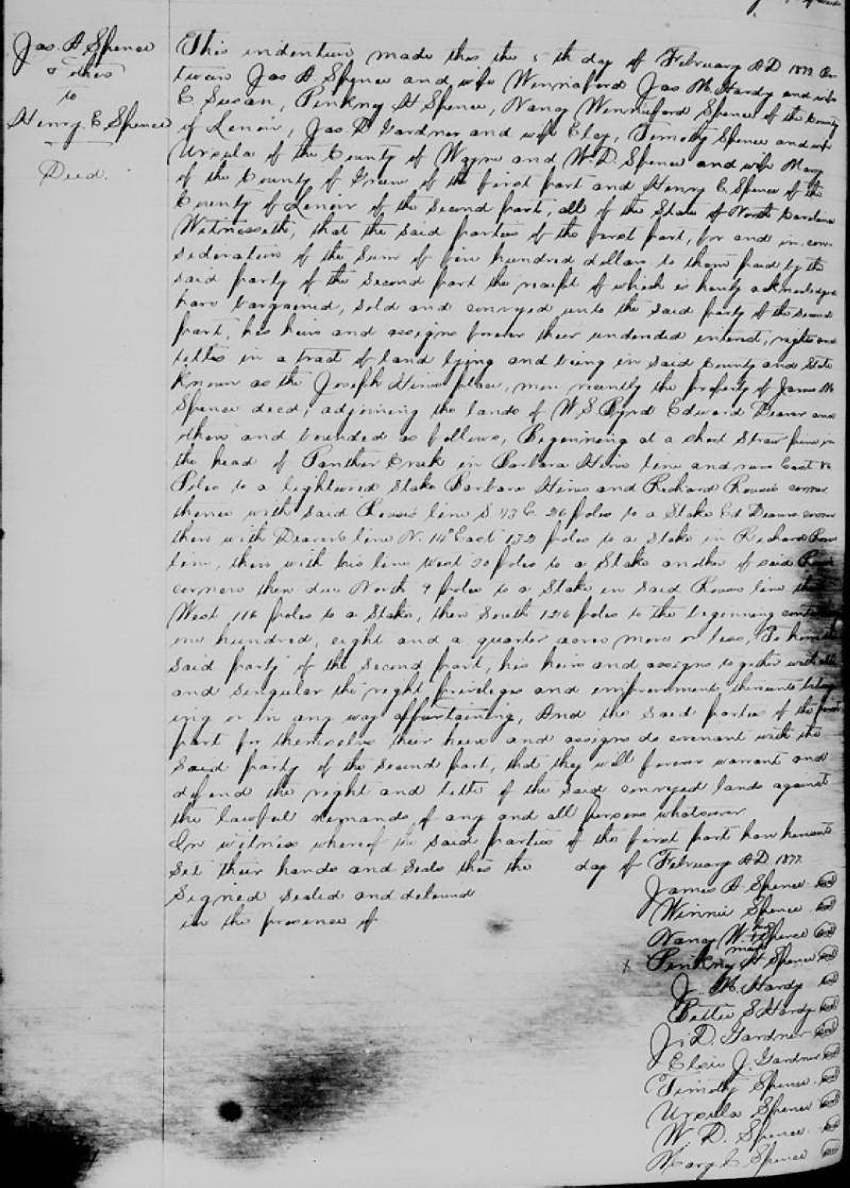 Jas. A. Spence
& others
to
Henry E. Spence
Deed.
This indenture made this the 5 th day of February AD 1877 be
tween Jas A Spence and wife Winnaford Jas M. Hardy and wife
E Susan, Pinkny H Spence, Nancy Winnieford Spence of the County
of Lenoir, Jas D. Gardner and wife Elcy, Timothy Spence and wife
Ursula of the County of Wayne and W. D. Spence and wife Mary
of the County of Green of the first part and Henry E. Spence of the
County of Lenoir of the second part, all of the State of North Carolina
Witnesseth, that the said parties of the first part, for and in con-
sideration of the sum of five hundred dollars to them paid by the
said party of the second part the receipt of which is hereby acknowledged
have bargained, sold and conveyed unto the said party of the second
part, his heirs and assigns forever their undended interest, rights and
titles in a tract of land lying and being in said County and State
known as the Joseph Hines place, more recently the property of James M
Spence decd, adjoining the lands of W. S Byrd Edward Deaver and
others and bounded as follows, Beginning at a short straw pine in
the head of Panther Creek in Barbara Hines line and runs East
Poles to a lightwood stake Barbara Hines and Richard Rouse's corner
thence with said Rouse's line S. 43 E. 26 poles to a Stake Ed Deavers corner
then with Deaver's line N. 14° East 132 poles to a Stake in Richard Rouse
line, then with his line West 20 poles to a Stake another of said Rouse
corners then due North 9 poles to a Stake in said Rouses line then
West 116 poles to a Stake, then South 126 poles to the beginning containing
one hundred, eight and a quarter acres more or less, To have the
said party of the second part, his heirs and assigns together with all
and singular the right priviliges and improvements thereunto belong
ing or in any way appurtaining, And the said parties of the first
part for themselves their heirs and assigns do covenant with the
said party of the second part, that they will forever warrant and
defend the right and title of the said conveyed lands against
the lawful demands of any and all persons whatsoever
In witness whereof the said parties of the first part have hereunto
set their hands and seals this the day of February AD 1877.
Signed sealed and delivered
in the presence of
James A. Spence seal
Winnie Spence seal
Nancy W. Spence seal
his
x Pinkny H Spence seal
mark
J. M. Hardy seal
Bettie S Hardy seal
J. D. Gardner seal
Elcie J. Gardner seal
Timothy Spence seal
Ursula Spence seal
W. D. Spence seal
Mary E Spence seal